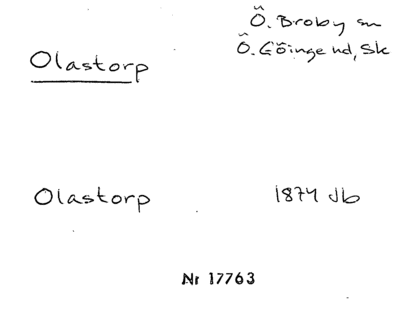 Ö. Broby sn
Olastorp
Ö. Göinge hd, Sk
Olastorp
1874 Jb
Nr 17763